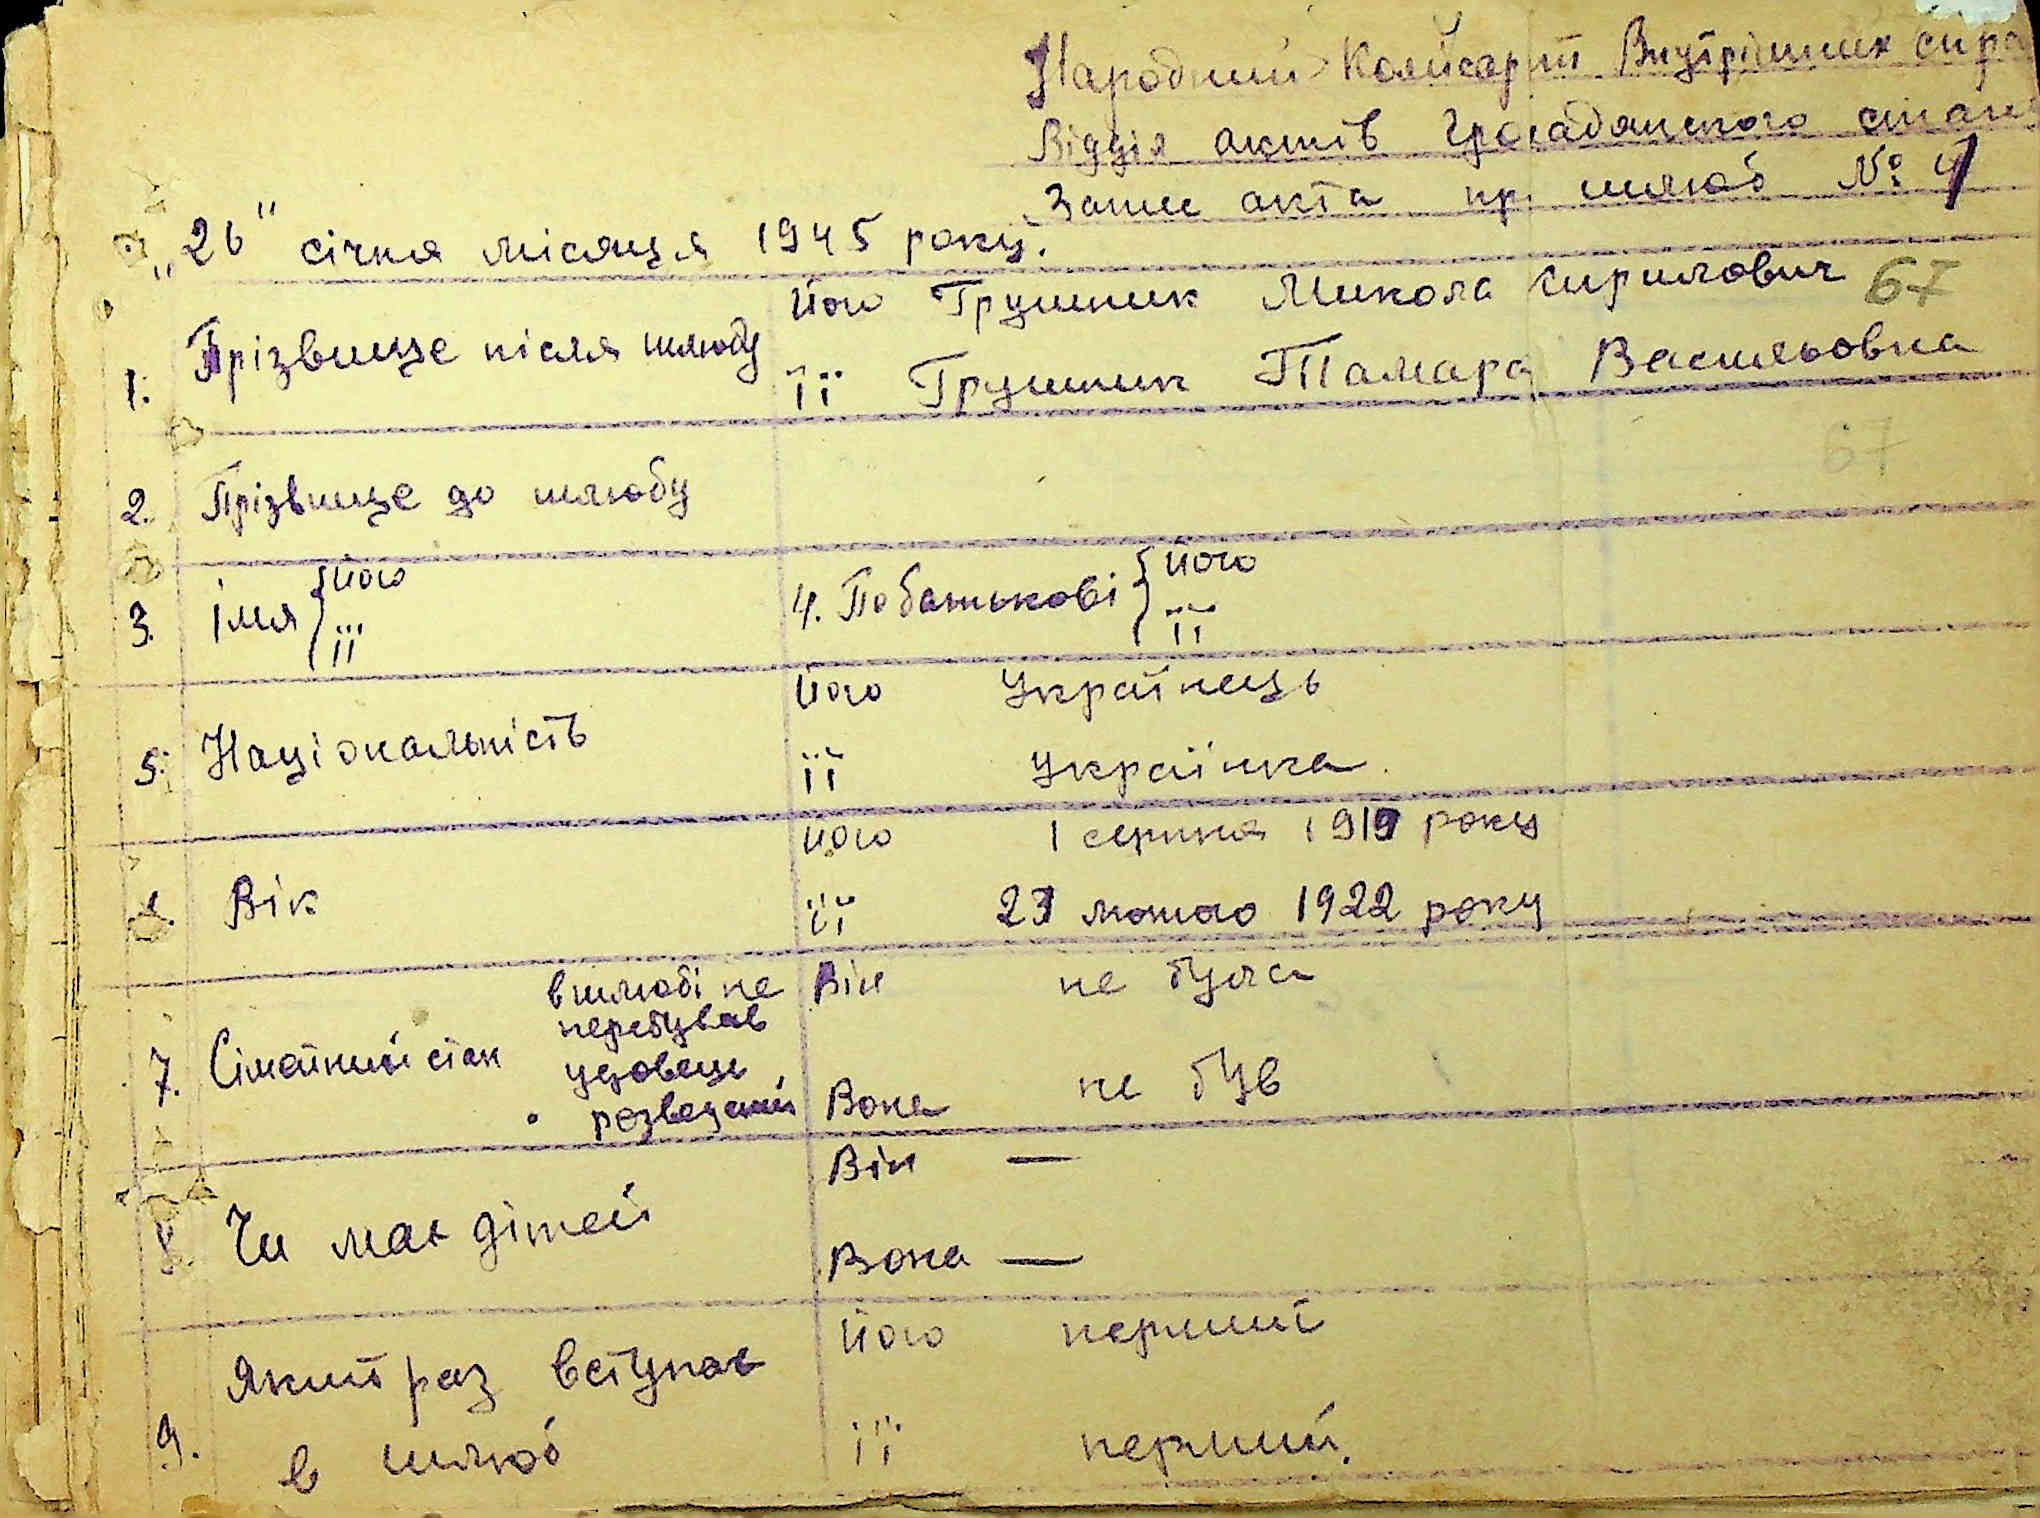 Народний Комісаріт Внутрішних Спра
Відділ актів Громадянського стан
Запис акта пр шлюб №
„26" січня місяця 1945 року.
1. Прізвище після шлюбу
Його Грушник Микола Кирилович 67
Її Грушник Тамара Васильовна
67
2. Прізвище до шлюбу
3. Імя { Його Її
4. Побатькові { Його Її
5. Національність
Його Українець
Її Українка.
Вік
Його 1 серпня 1919 року
Її 23 лютого 1922 року
7. Сімейний стан
в шлюбі не
перебував
удовець
розведений
Він не була
Вона не був
8. Чи має дітей
Він —
Вона —
9. Який раз вступає
в шлюб
Його перший
Її перший.